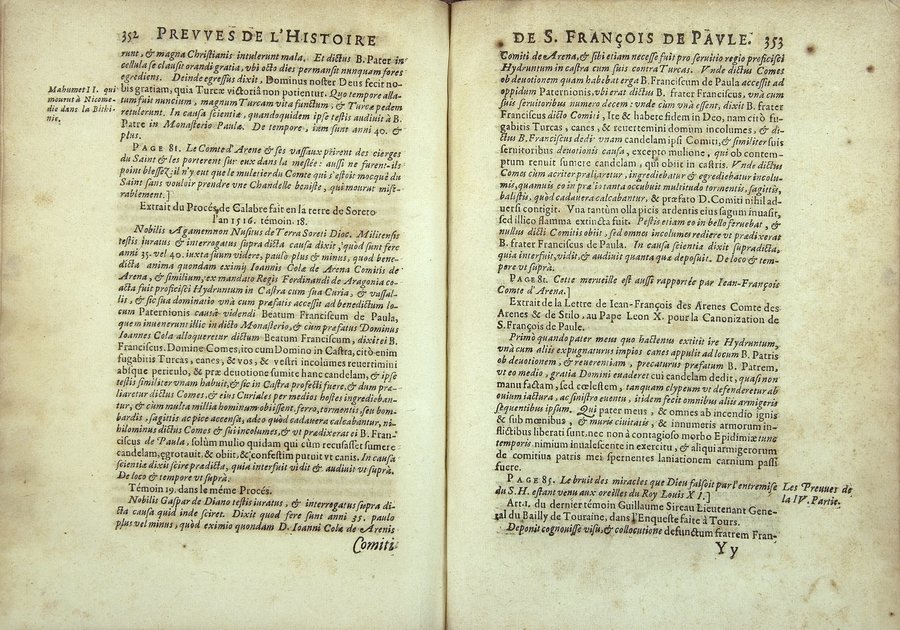 352 PREVVES DE L'HISTOIRE
runt, & magna Christianis intulerunt mala. Et dictus B. Pater in
cellula se clausit orandi gratia, vbi octo dies permansit nunquam fores
egrediens. Deinde egressus dixit, Dominus noster Deus fecit no-
bis gratiam, quia Turcæ victoriā non potientur. Quo tempore alla-
tum fuit nuncium, magnum Turcam vita functum, & Turcæ pedem
retulerunt. In causa scientiæ, quandoquidem ipse testis audiuit à B.
Patre in Monasterio Paulæ. De tempore, iam sunt anni 40. &
plus.
Mahumet II. qui
mourut à Nicome-
die dans la Bithi-
nie.
PAGE 81. Le Comte d'Arene & ses vassaux prirent des cierges
du Saint & les porterent sur eux dans la meslée: aussi ne furent-ils
point blessez: il n'y eut que le muletier du Comte qui s'estoit mocqué du
Saint sans vouloir prendre vne Chandelle beniste, qui mourut misé-
rablement.]
Extrait du Procés de Calabre fait en la terre de Soreto
l'an 1516. témoin. 18.
Nobilis Agamemnon Nusitus de Terra Soreti Dioc. Militensis
testis iuratus & interrogatus supra dicta causa dixit, quòd sunt ferè
anni 35. vel 40. iuxta suum videre, paulò plus & minus, quod bene-
dicta anima quondam eximij Ioannis Colæ de Arena Comitis de
Arena, & similium, ex mandato Regis Ferdinandi de Aragonia co-
acta fuit proficisci Hydruntum in Castra cum sua Curia, & vassal-
lis, & sic sua dominatio vnà cum præfatis accessit ad benedictum lo-
cum Paternionis causâ videndi Beatum Franciscum de Paula,
quem inuenerunt illic in dicto Monasterio, & cum præfatus Dominus
Ioannes Cola alloqueretur dictum Beatum Franciscum, dixit ei B.
Franciscus. Domine Comes, ito cum Domino in Castra, citò enim
fugabitis Turcas, canes, & vos, & vestri incolumes reuertimini
absque periculo, & præ deuotione sumite hanc candelam, & ipse
testis similiter vnam habuit, & sic in Castra profecti fuere, & dum præ-
liaretur dictus Comes, & eius Curiales per medios hostes ingredieban-
tur, & cùm multa millia hominum obiissent, ferro, tormentis, seu bom-
bardis, sagittis ac pice accensa, adeò quod cadauera calcabantur, ni-
hilominus dictus Comes & sui incolumes, & vt prædixerat ei B. Fran-
ciscus de Paula, solùm mulio quidam qui cùm recusasset sumere
candelam, ægrotauit, & obiit, & confestim putruit vt canis. In causa
scientiæ dixit scire prædicta, quia interfuit vidit & audiuit vt suprà.
De loco & tempore vt suprà.
Témoin 19. dans le méme Procés.
Nobilis Gaspar de Diano testis iuratus, & interrogatus supra di-
cta causa quid inde sciret. Dixit quod ferè sunt anni 35. paulo
plus vel minus, quòd eximio quondam D. Ioanni Colæ de Arenis
Comiti
DE S. FRANÇOIS DE PAVLE. 353
Comiti de Arena, & sibi etiam necesse fuit pro seruitio regio proficisci
Hydruntum in castra cum suis contra Turcas. Vnde dictus Comes
ob deuotionem quam habebat erga B. Franciscum de Paula accessit ad
oppidum Paternionis, vbi erat dictus B. frater Franciscus, vnà cum
suis seruitoribus numero decem: vnde cùm vnà essent, dixit B. frater
Franciscus dicto Comiti, Ite & habete fidem in Deo, nam citò fu-
gabitis Turcas, canes, & reuertemini domum incolumes, & di-
ctus B. Franciscus dedit vnam candelam ipsi Comiti, & similiter suis
seruitoribus deuotionis causa, excepto mulione, qui ob contem-
ptum renuit sumere candelam, qui obiit in castris. Vnde dictus
Comes cùm acriter præliaretur, ingrediebatur & egrediebatur incolu-
mis, quamuis eo in præ iotanta occubuit multitudo tormentis, sagittis,
balistis, quòd cadauera calcabatur, & præfato D. Comiti nihil ad-
uersi contigit. Vna tantùm olla picis ardentis eius sagum inuasit,
sed illico flamma extincta fuit. Pestis etiam eo in bello seruebat, &
nullus dicti Comitis obiit, sed omnes incolumes rediere vt prædixerat
B. frater Franciscus de Paula. In causa scientiæ dixit supradicta,
quia interfuit, vidit & audiuit quanta quæ deposuit. De loco & tem-
pore vt suprà.
PAGE 81. Cette merueille est aussi rapportée par Iean-François
Comte d'Arena.]
Extrait de la Lettre de Iean-François des Arenes Comte des
Arenes & de Stilo, au Pape Leon X. pour la Canonization de
S. François de Paule.
Primò quando pater meus quo hactenus extitit ire Hydruntum,
vnà cum aliis expugnaturus impios canes appulit ad locum B. Patris
ob deuotionem, & reuerentiam, precaturus præfatum B. Patrem,
vt eo medio, gratia Domini euaderet cui candelam dedit, quasi non
manu factam, sed cœlestem, tanquam clypeum vt defenderetur ab
ouium iactura, ac sinistro euentu, itidem fecit omnibus aliis armigeris
sequentibus ipsum. Qui pater meus, & omnes ab incendio ignis
& sub mœnibus, & muris ciuitatis, & innumeris armorum in-
flictibus liberati sunt, nec non à contagioso morbo Epidimiæ tunc
temporis nimium inualescente in exercitu, & aliqui armigerorum
de comitiua patris mei spernentes laniationem carnium passi
fuere.
PAGE 85. Le bruit des miracles que Dieu faisoit par l'entremise
du S. H. estant venu aux oreilles du Roy Louis XI.]
Les Preuues de
la IV. Partie.
Art. 1. du dernier témoin Guillaume Sireau Lieutenant Gene-
ral du Bailly de Touraine, dans l'Enqueste faite à Tours.
Deponit cognouisse visu, & collocutione defunctum fratrem Fran-
Yy